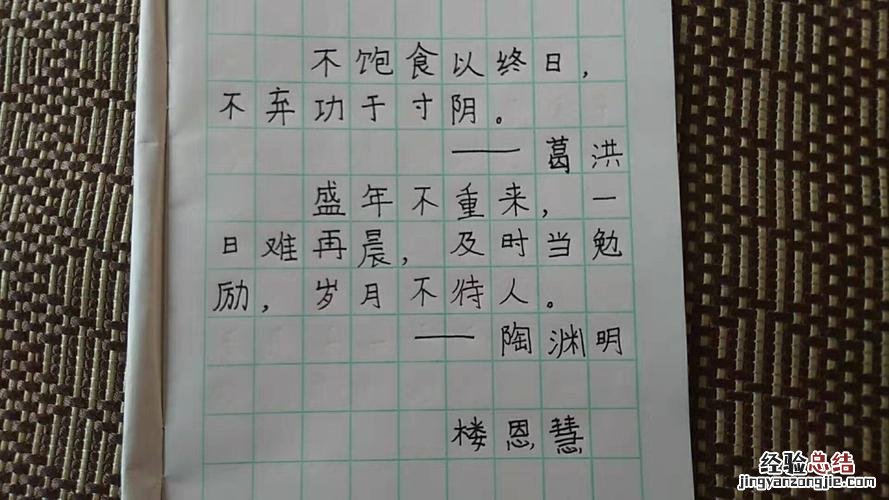 不饱食以终日，
不弃功于寸阴。
——葛洪
盛年不重来，一
日难再晨，及时当勉
励，岁月不待人。
——陶渊明
楼恩慧
经验总结
jingyanzongjie.com